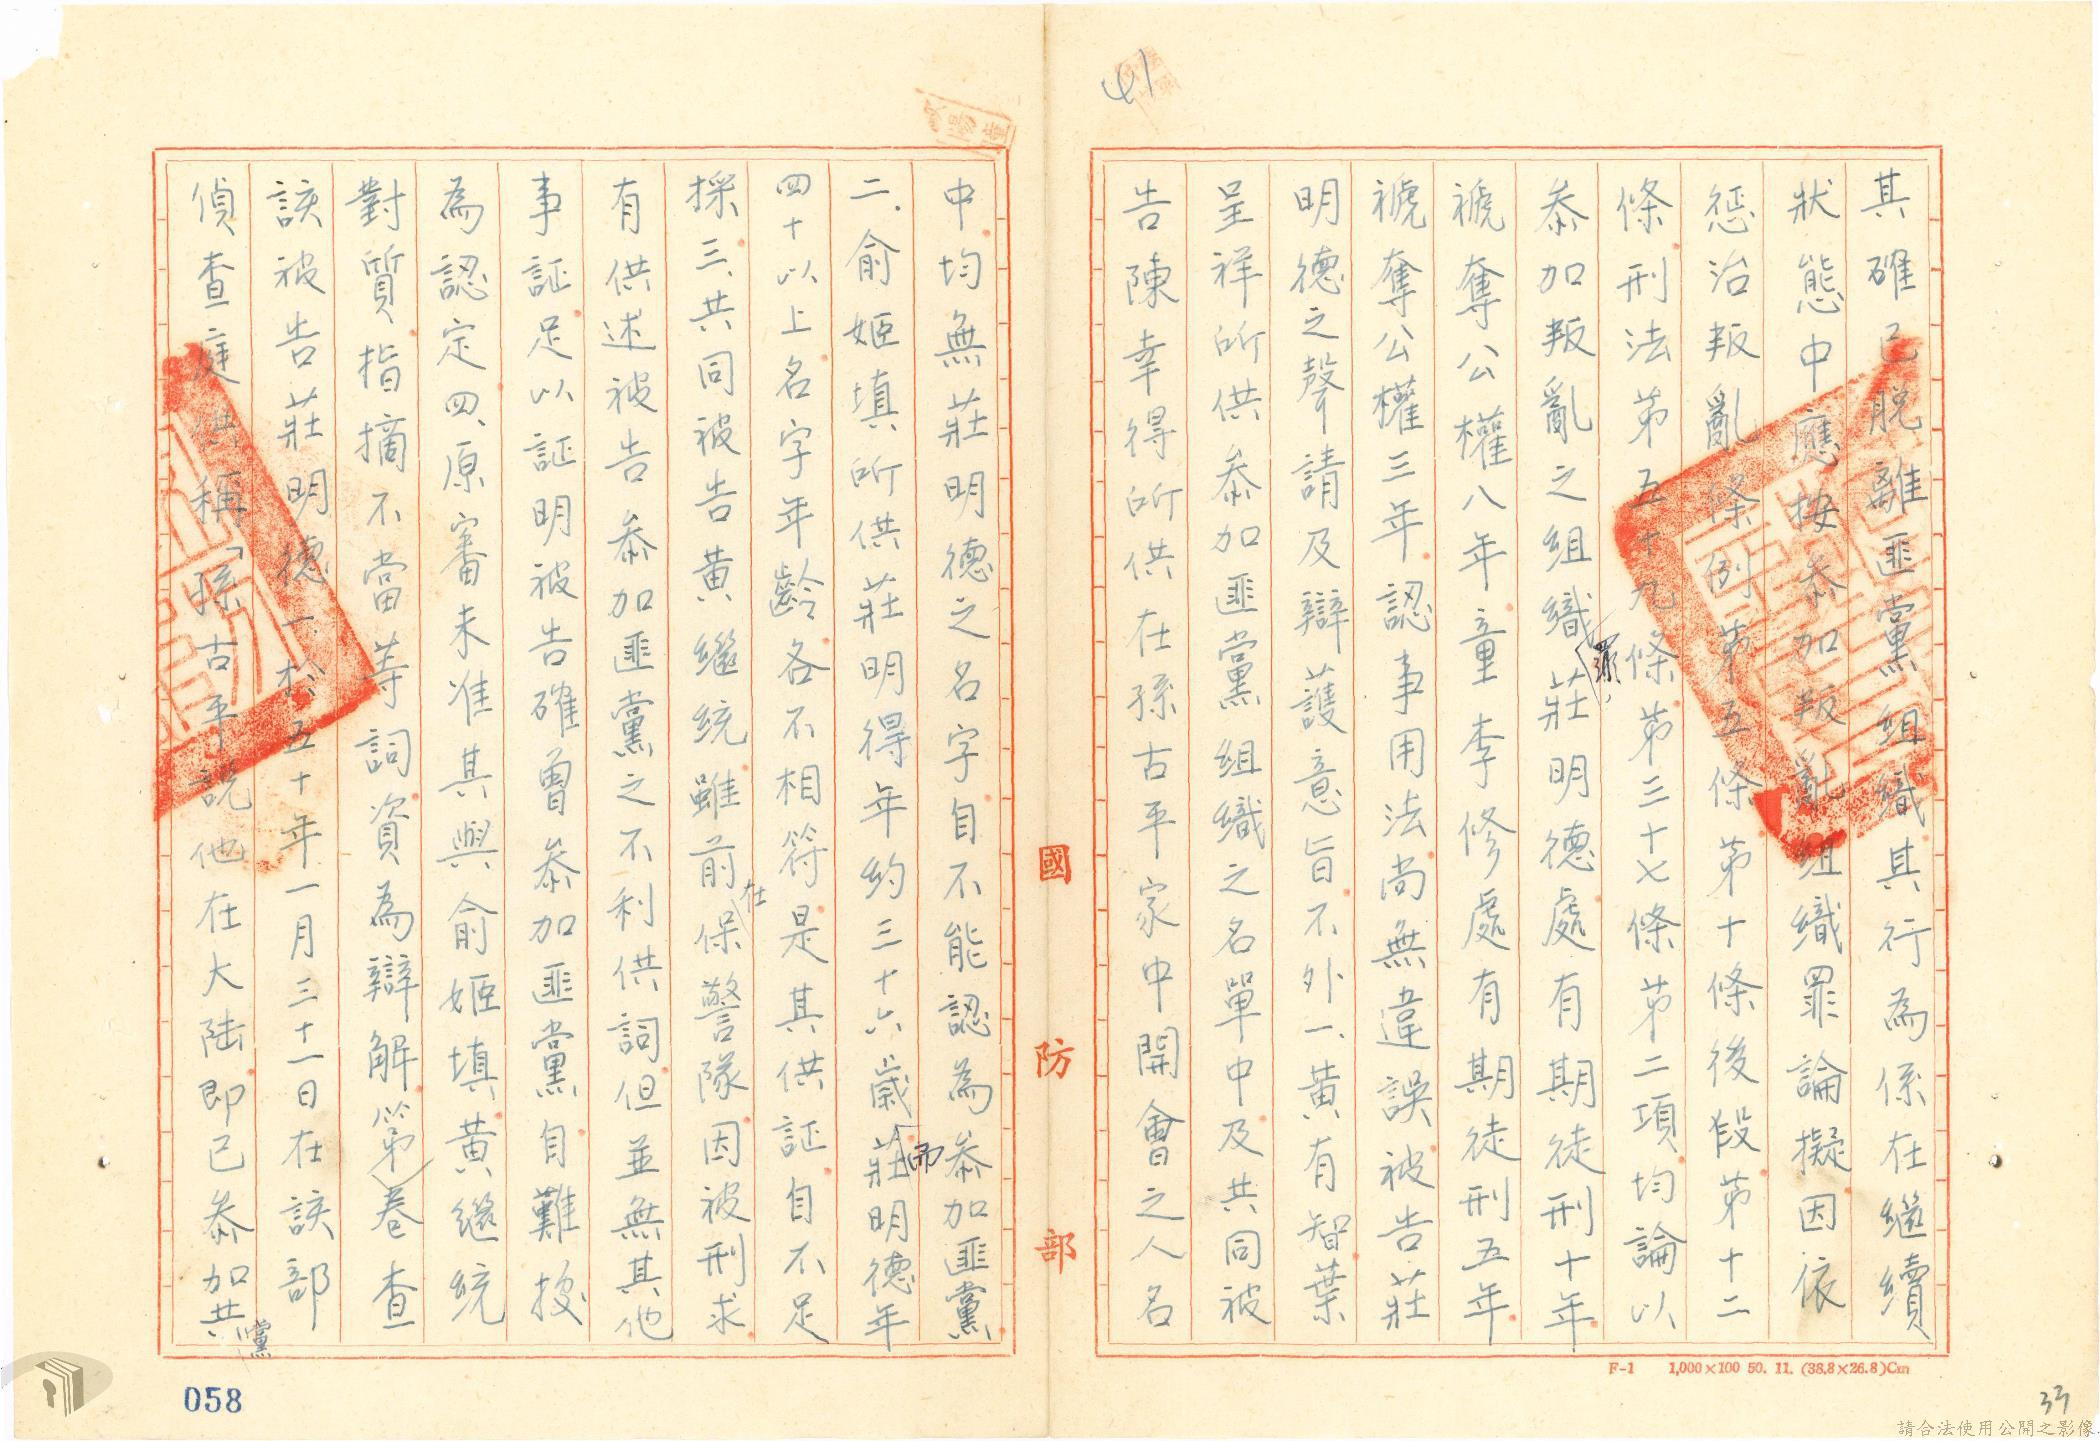 41
其確已脫離匪黨組織其行為係在繼續
狀態中應按叅加叛亂組織罪論擬因依
懲治叛亂條例第五條第十條後段第十二
條刑法第五十九條第三十七條第二項均論以
叅加叛亂之組織罪,莊明德處有期徒刑十年
褫奪公權八年童李修處有期徒刑五年
褫奪公權三年認事用法尚無違誤被告莊
明德之聲請及辯護意旨不外一、黃有智葉
呈祥所供叅加匪黨組織之名單中及共同被
告陳幸得所供在孫古平家中開會之人名
國防部
中均無莊明德之名字自不能認為叅加匪黨
二、俞姬填所供莊明得年約三十六歲而莊明德年
四十以上名字年齡各不相符是其供証自不足
採三、共同被告黃繼統雖前在保警隊因被刑求
有供述被告叅加匪黨之不利供詞但並無其他
事証足以証明被告確曾叅加匪黨自難按
為認定四、原審未准其與俞姬填黃繼統
對質指摘不當等詞資為辯解第卷查
該被告莊明德一、於五十年一月三十一日在該部
偵查庭供稱「孫古平說他在大陆即已叅加共黨
F-1 1,000×100 50. 11. (38.8×26.8)Cm
058
37
請合法使用公開之影像